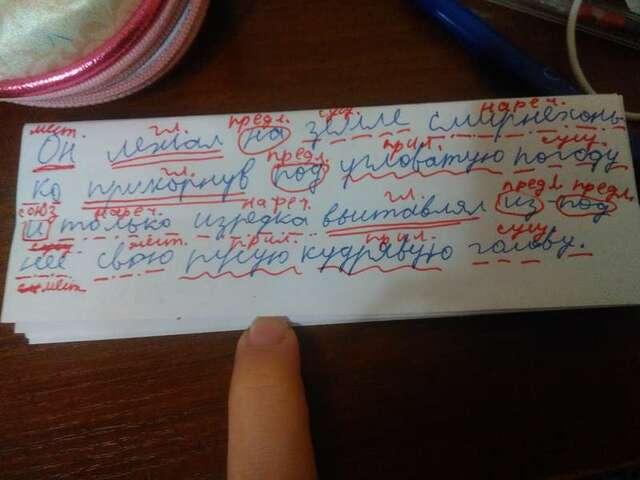 мест. гл. предл. сущ. нареч.
Он лежал на земле смирнехонь-
гл. предл. прил. сущ.
ко прикорнув под угловатую погоду
союз нареч. нареч. гл. предл предл.
и только изредка выставлял из-под
мест. прил. прил. сущ.
неё свою русую кудрявую голову.
мест.